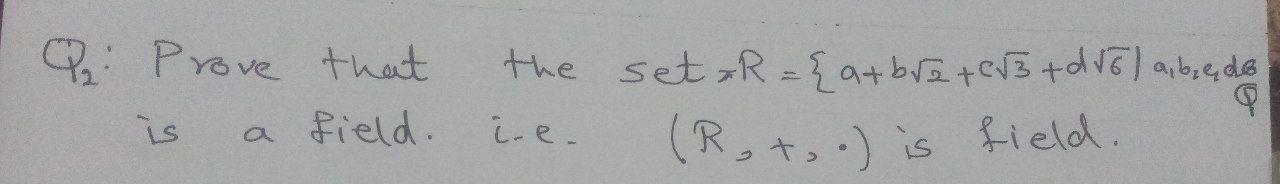 Q₂: Prove that the set R = {a+b√2+c√3+d√6 | a,b,c,d∈
Q
is a field. i.e. (R, +, ·) is field.